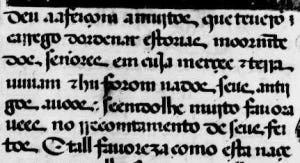 deu aafeiçom amuitos, que teuerō
carrego dordenar estorias, moormēte
dos, senhores em cuja merçee z terra
uiuiam z hu forom nados, seus antii
gos auoos. seendolhe muito fauora
uees, no rrecomtamento de seus fei
tos, E tall fauoreza como esta naçe